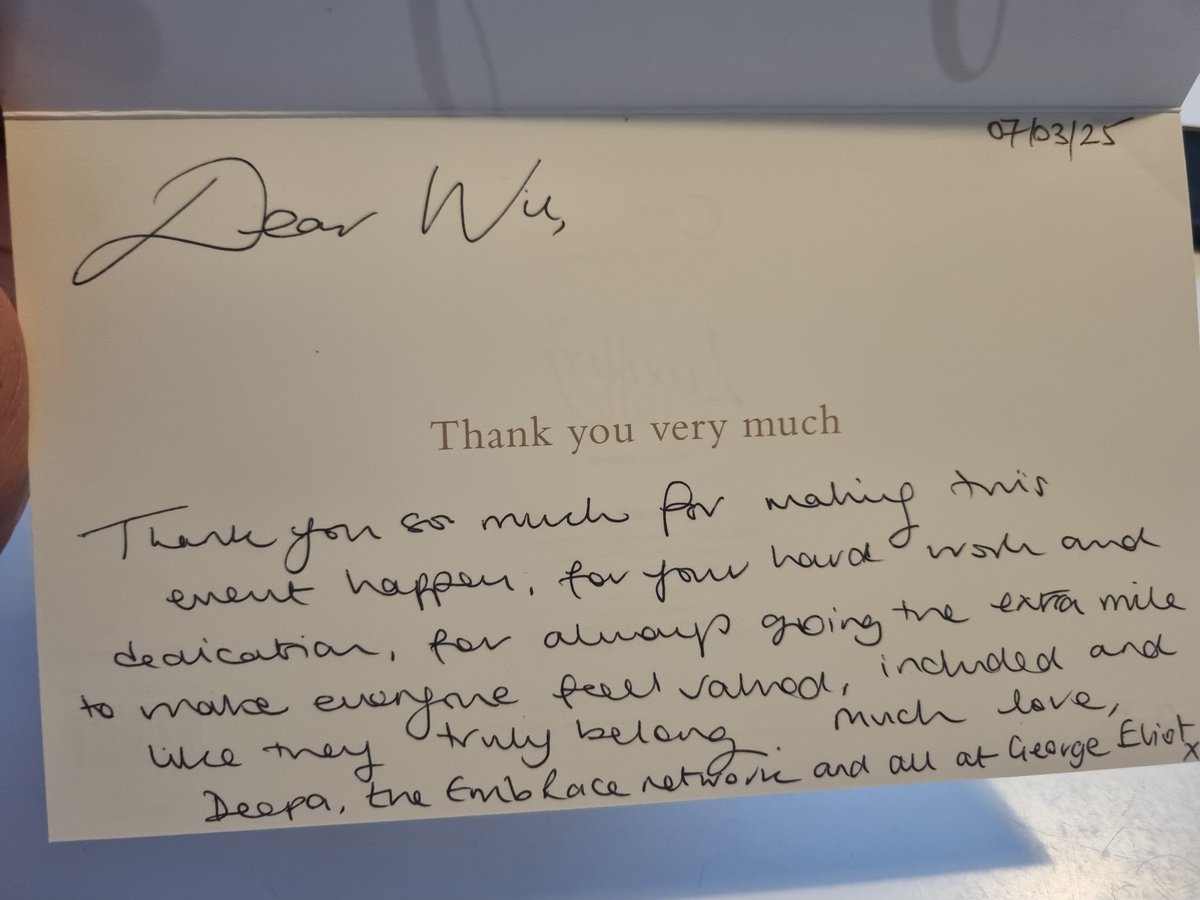 07/03/25
Dear Will,
Thank you very much
Thank you so much for making this
event happen, for your hard work and
dedication, for always going the extra mile
to make everyone feel valued, included and
like they truly belong. Much love,
Deepa, the EmbRace network and all at George Eliot x